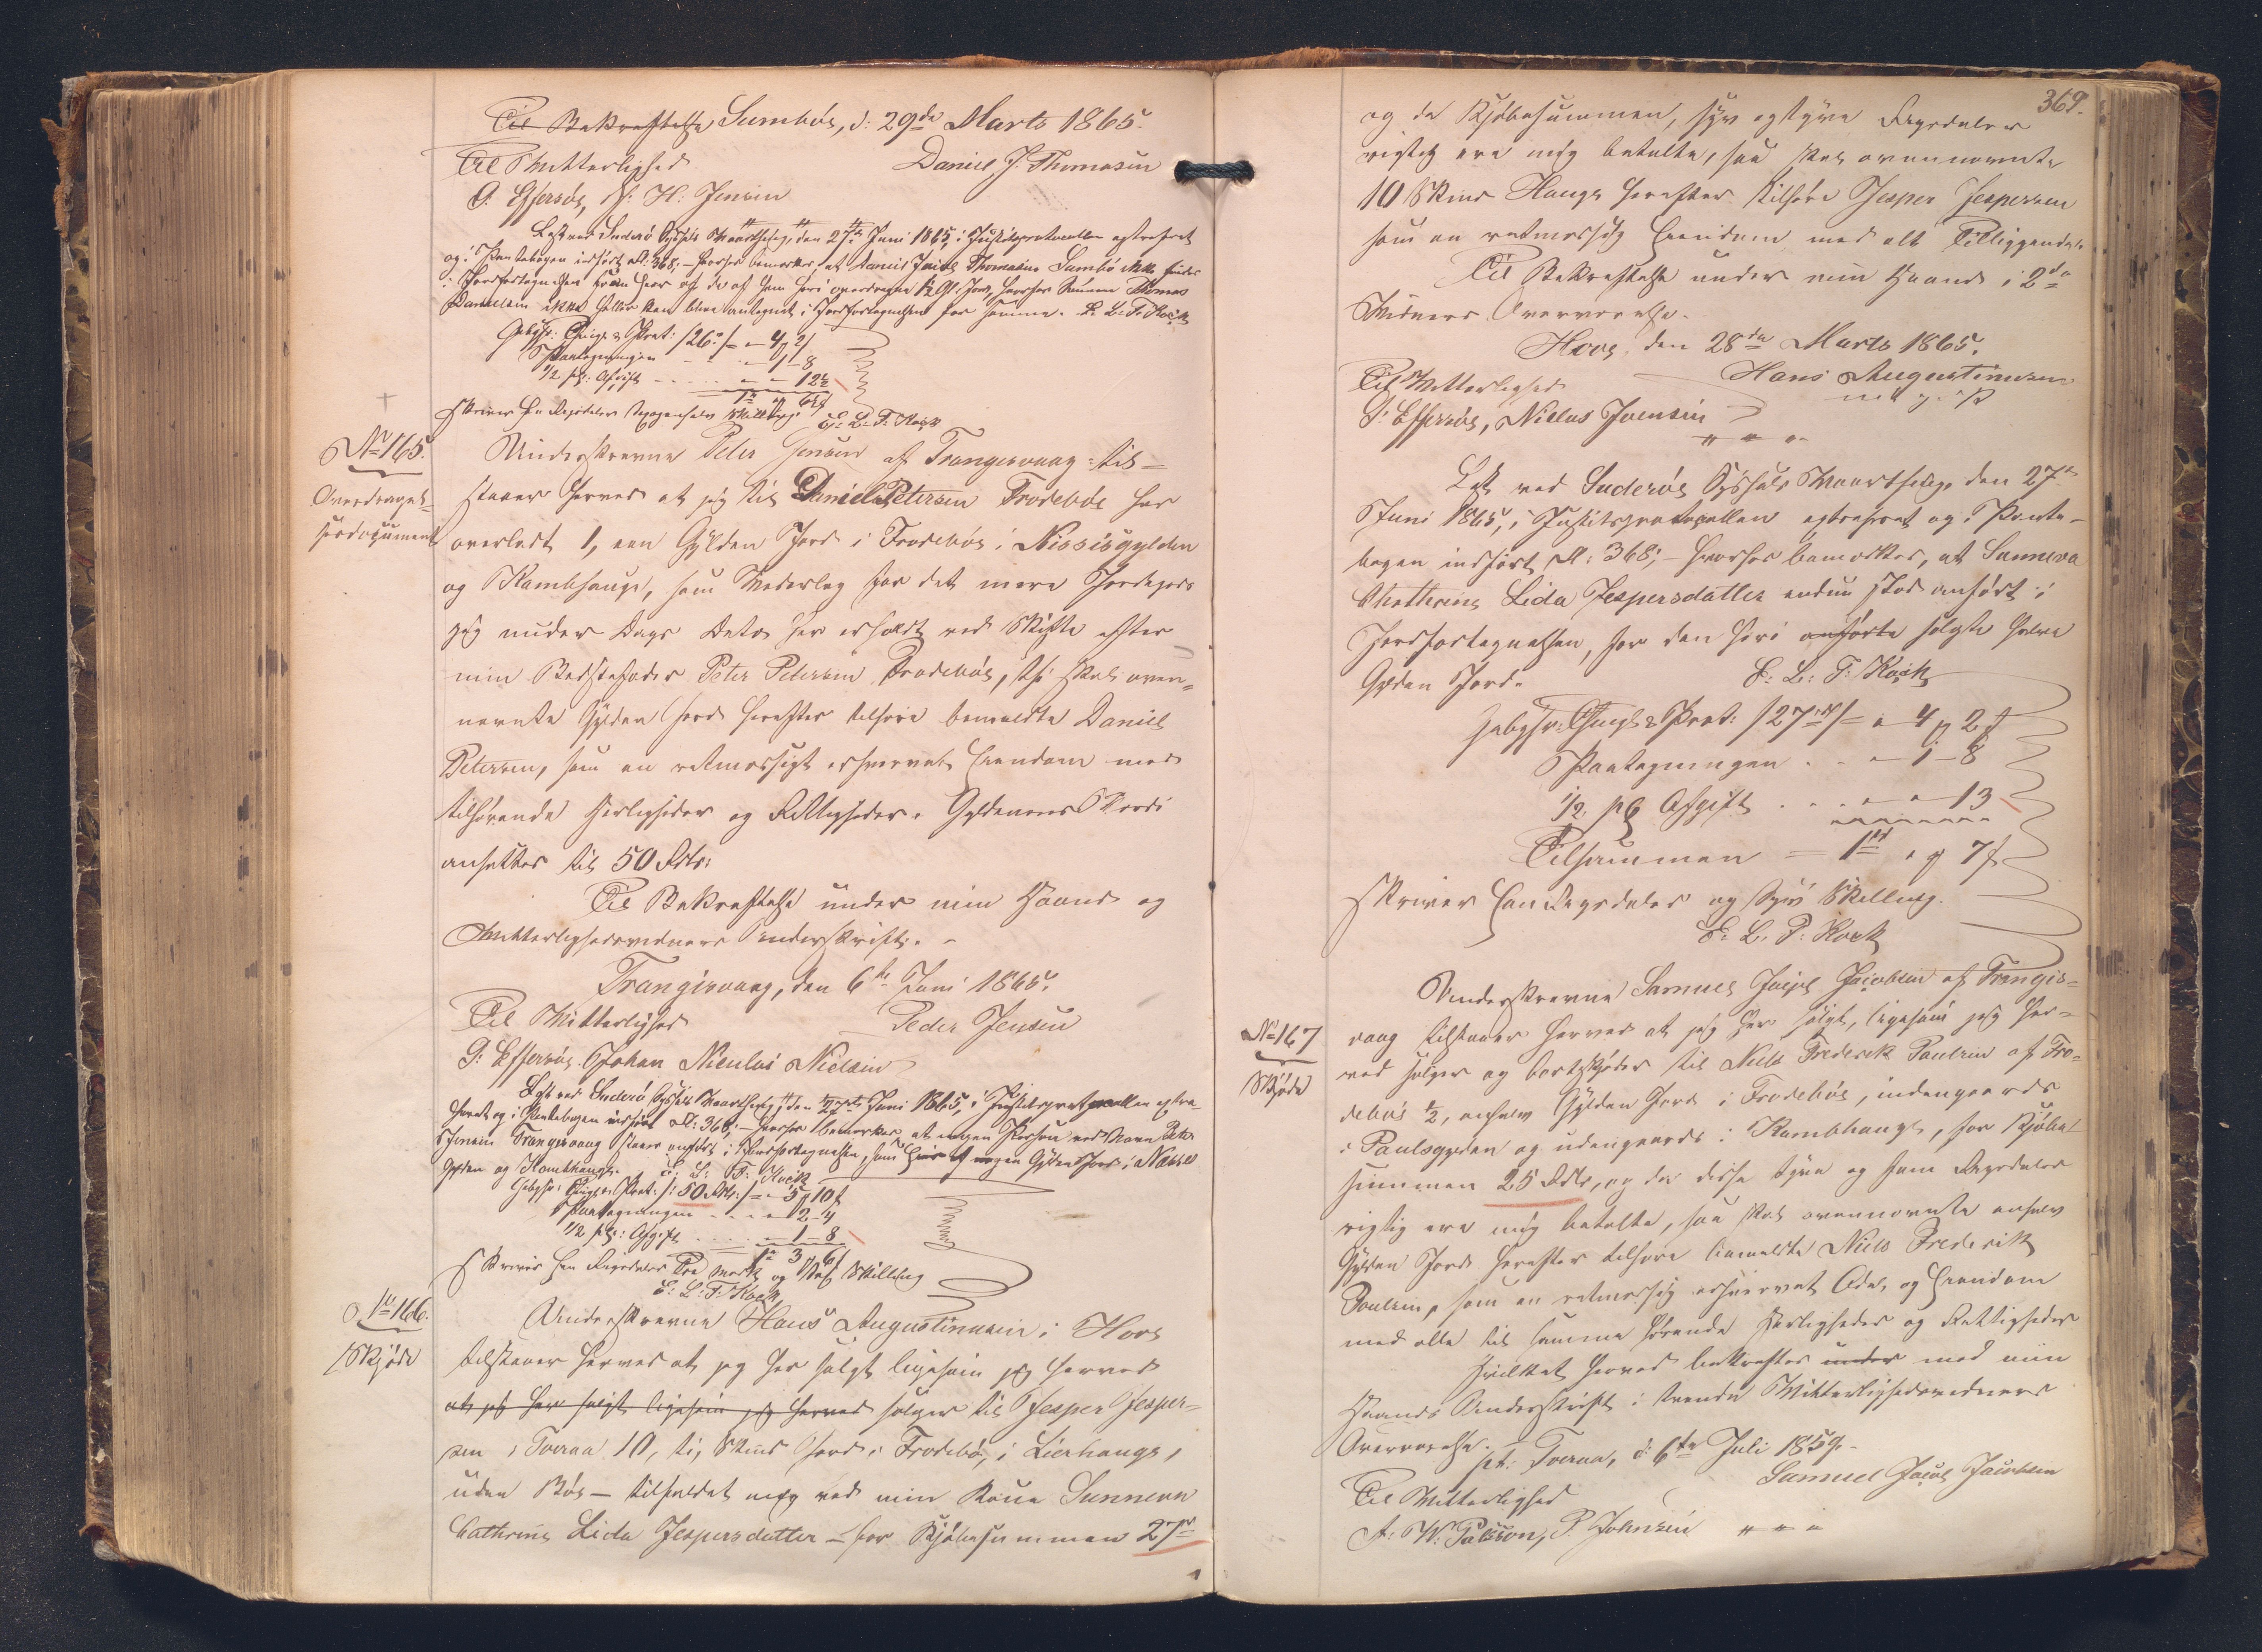 Til Bekræftelse Sumbøe, d: 29de Marts 1865.
Til Vitterlighed Daniel J. Thomasen
G. Effersøe, H: Jensen
Læst ved Suderø Syssels Vaarthing, den 27de Juni 1865, i Justitsprotocollen extraheret
og i Pantebogen indført fl: 368; – hvorfor bemærkes, at Daniel Thomasen Sumbø ikke findes
i Jordfortegnelsen
Danielsen ikke heller kan blive antegnet i Jordfortegnelsen for samme. E. L. T. Kock
Gebyhr: Thingl. & Prot: /26 /= – 4 2
Paategningen – 1 – 8
1/2 pC: Afgift – 12½
Skriver Een Rigsdaler E. L. T. Kock
No 165.
Overdragelsesdocument
Underskrevne Peter Jensen af Trangisvaag til-
staaer herved at jeg til Daniel Petersen Frodebøe har
overladt 1, een Gylden Jord i Frodebøe i Nissisgylden
og Kambhauge, som Vederlag for det mere Jordegods
jeg under Dags Dato har erholdt ved Skifte efter
min Bedstefader Peter Petersen Frodebøe, thi skal oven-
nævnte Gylden Jord herefter tilhøre bemeldte Daniel
Petersen, som en retmæssigt erhvervet Eiendom med
tilhørende Herligheder og Rettigheder. Gyldenens Værdi
ansættes til 50 Rdlr:
Til Bekræftelse under min Haand og
Vitterlighedsvidners Underskrift. –
Trangisvaag, den 6te Juni 1865.
Til Vitterlighed Peder Jensen
G: Effersøe. Johan Niculai Nielsen
Læst ved Suderø Syssels Vaarthing, den 27de Juni 1865, i Justitsprotocollen extra-
heret og i Pantebogen indført fl: 368; – hvorfor bemærkes at ingen Person ved Navn Peter
Jensen Trangisvaag staaer anført i Jordfortegnelsen, som Eier af nogen Gylden Jord i Nissis
Gylden og Kambhauge. E: L: T: Kock
Gebyhr: Thingl. & Prot: /: 50 Rdlr: /= – 5 10
Paategningen – 2 – 4
1/2 pC: Afgift – 1 – 8
1 3 6
Skriver Een Rigsdaler Tre Mark og Sex Skilling
E: L: T: Kock
No 166.
Skjøde
Underskrevne Hans Augustinusen i Hove
tilstaaer herved at jeg har solgt ligesom jeg herved
at jeg har solgt ligesom jeg herved sælger til Jesper Jesper-
sen i Tveraa 10, ti, Skind Jord i Frodebø, i Lierhauge,
uden Bøe – tilfaldet mig ved min Kone Sunneva
Cathrine Lida Jespersdatter – for Kjøbesummen 27rd
369.
og da Kjøbesummen, syv og tyve Rigsdaler
rigtig ere mig betalte, saa skal ovennævnte
10 Skind Hauge herefter tilhøre Jesper Jespersen
som en retmæssig Eiendom med alt Tilliggende.
Til Bekræftelse under min Haand i 2de
Vidners Overværelse.
Hove, den 28de Marts 1865.
Til Vitterlighed Hans Augustinusen
G: Effersøe, Niclas Joensen m. f. P.
Læst ved Suderøe Syssels Vaarthing, den 27de
Juni 1865, i Justitsprotocollen extraheret og i Pante-
bogen indført fl: 368; – hvorfor bemærkes, at Sunneva
Chathrine Lida Jespersdatter endnu stod anført i
Jordfortegnelsen, for den heri anførte solgte halve
Gylden Jord. E: L: T: Kock
Gebyhr: Thingl. & Prot: /27rd/= – 4 2
Paategningen – 1 – 8
1/2 pC Afgift – 13
Tilsammen = 1rd 7
Skriver Een Rigsdaler og Syv Skilling.
E: L. T: Kock
No 167
Skjøde
Underskrevne Samuel Jacob Jacobsen af Trangis-
vaag tilstaaer herved at jeg har solgt, ligesom jeg her-
ved sælger og bortskjøder til Niels Frederik Poulsen af Fro-
debøe 1/2, enhalv Gylden Jord i Frodebøe, indengaards
i Paulsgylden og udengaards i Kambhauge, for Kjøbe
summen 25 Rdlr, og da disse tyve og fem Rigsdaler
rigtig ere mig betalte, saa skal ovennævnte enhalv
Gylden Jord herefter tilhøre bemeldte Niels Frederik
Poulsen, som en retmæssig erhvervet Odel og Eiendom
med alle til samme hørende Herligheder og Rettigheder
Hvilket herved bekræftes under med min
Haands Underskrift i tvende Vitterlighedsvidners
Overværelse.
pt: Tveraa, d: 6te Juli 1859.
Til Vitterlighed Samuel Jacob Jacobsen
A: W: Pålsson, P. Johnsen